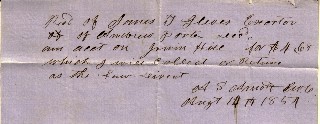 Recd of James T Alves Executor
of Andrew Porter decd
an acct on Irwin Hill for $4.68
which I will Collect or Return
as the Law directs
Augt 14th 1854